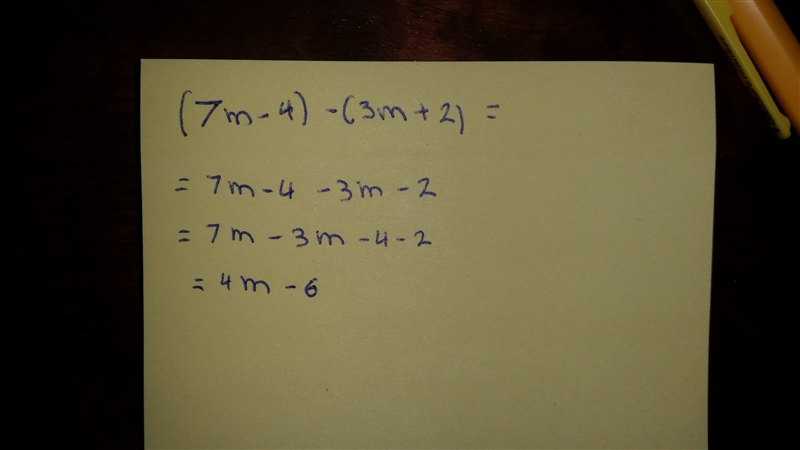 (7m-4) -(3m+2) =
= 7m-4 -3m-2
= 7m - 3m -4-2
= 4m - 6